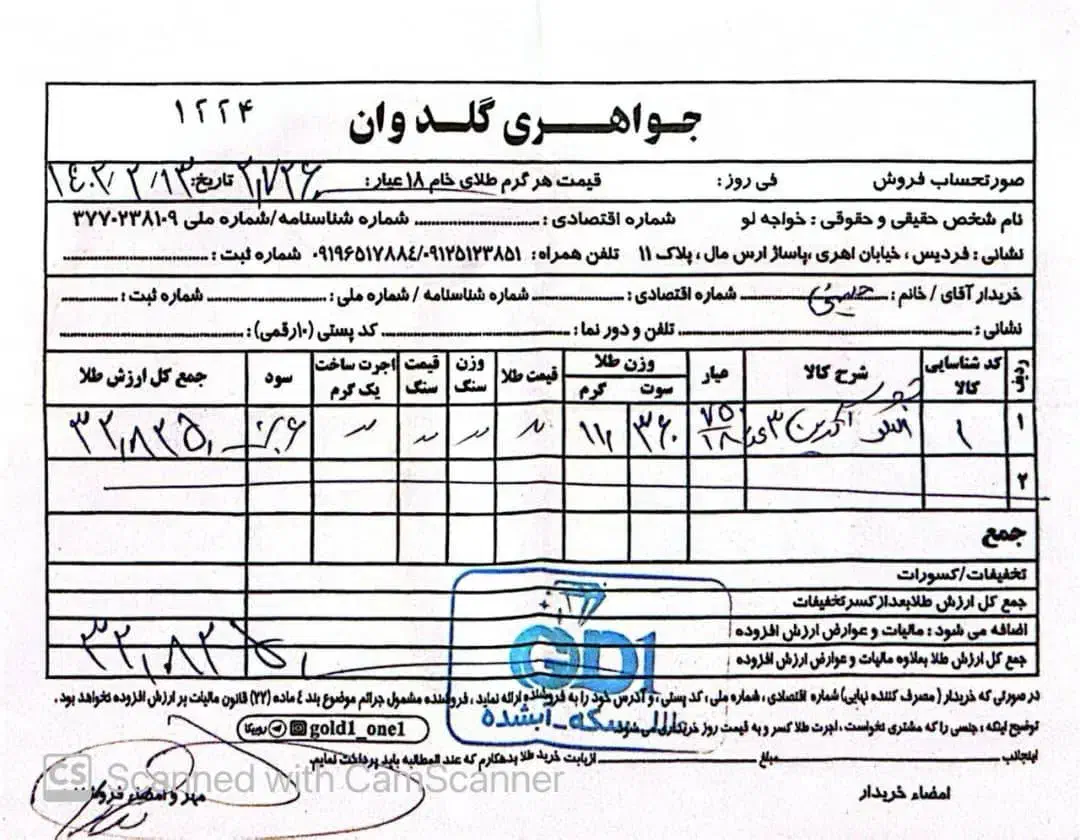 جواهری گلد وان
۱۲۲۴
صورتحساب فروش فی روز: قیمت هر گرم طلای خام ۱۸ عیار: ۳,۷۲۶ تاریخ: ۱۴۰۳/۲/۱۳
نام شخص حقیقی و حقوقی: خواجه لو شماره اقتصادی: شماره شناسنامه/شماره ملی ۳۷۷۰۲۳۸۱۰۹
نشانی: فردیس، خیابان اهری، پاساژ ارس مال، پلاک ۱۱ تلفن همراه: ۰۹۱۲۵۱۲۳۸۵۱/۰۹۱۹۶۵۱۷۸۸۴ شماره ثبت:
خریدار آقای / خانم: شماره اقتصادی: شماره شناسنامه / شماره ملی: شماره ثبت:
نشانی: تلفن و دور نما: کد پستی (۱۰رقمی):
ردیف کد شناسایی کالا شرح کالا عیار وزن طلا سوت گرم قیمت طلا وزن سنگ قیمت سنگ اجرت ساخت یک گرم سود جمع کل ارزش طلا
۱ ۱ ۳ ۷۵۰/۱۸ ۳۶۰ ۱۱, 〃 〃 〃 〃
۲
جمع
تخفیفات/کسورات
جمع کل ارزش طلا بعد از کسر تخفیفات
اضافه می شود: مالیات و عوارض ارزش افزوده
جمع کل ارزش طلا بعلاوه مالیات و عوارض ارزش افزوده
GD1
طلا_سکه_آبشده
در صورتی که خریدار (مصرف کننده نهایی) شماره اقتصادی، شماره ملی، کد پستی، و آدرس خود را به فروشنده ارائه نماید، فروشنده مشمول جرائم موضوع بند ٤ ماده (۲۲) قانون مالیات بر ارزش افزوده نخواهد بود.
توضیح اینکه: جنسی را که مشتری نخواست، اجرت طلا کسر و به قیمت روز خریداری می شود.
gold1_one1 روبیکا
اینجانب مبلغ از بابت خرید طلا بدهکارم که عند المطالبه باید پرداخت نمایم.
امضاء خریدار مهر و امضاء فروشنده
CS Scanned with CamScanner